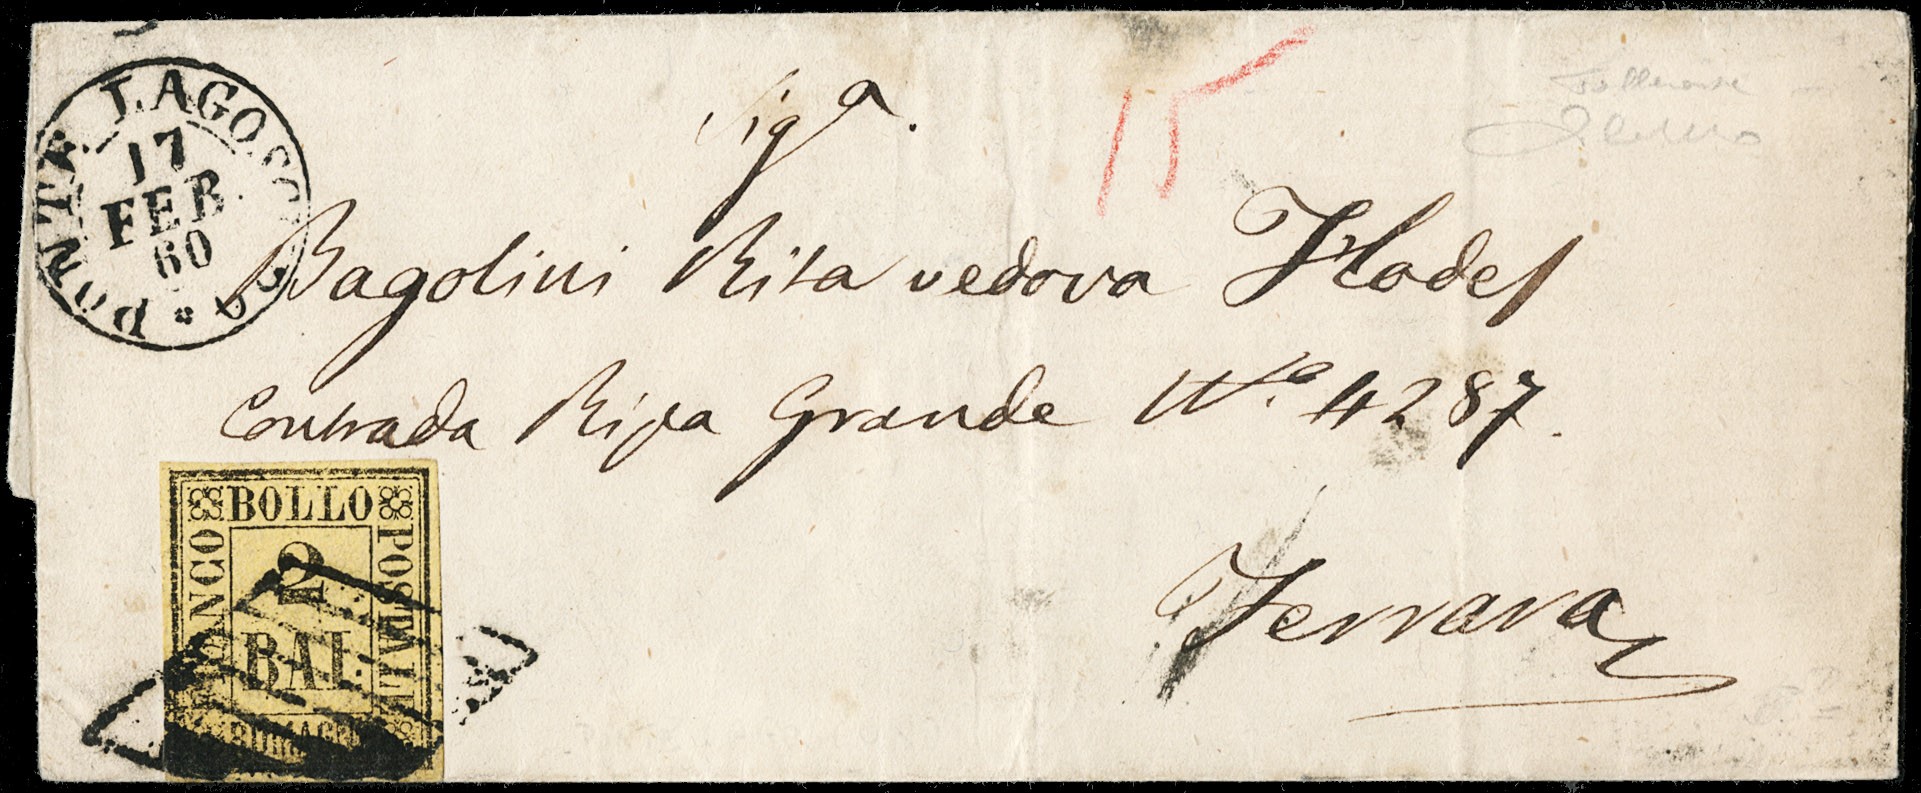 PONTE LAGOSCURO
17
FEB
60
15
Sig.ª
Bagolini Rita vedova Hodel
Contrada Ripa Grande Nº 4287.
Ferrara
BOLLO
FRANCO
POSTALE
2
BAI
ROMAGNE